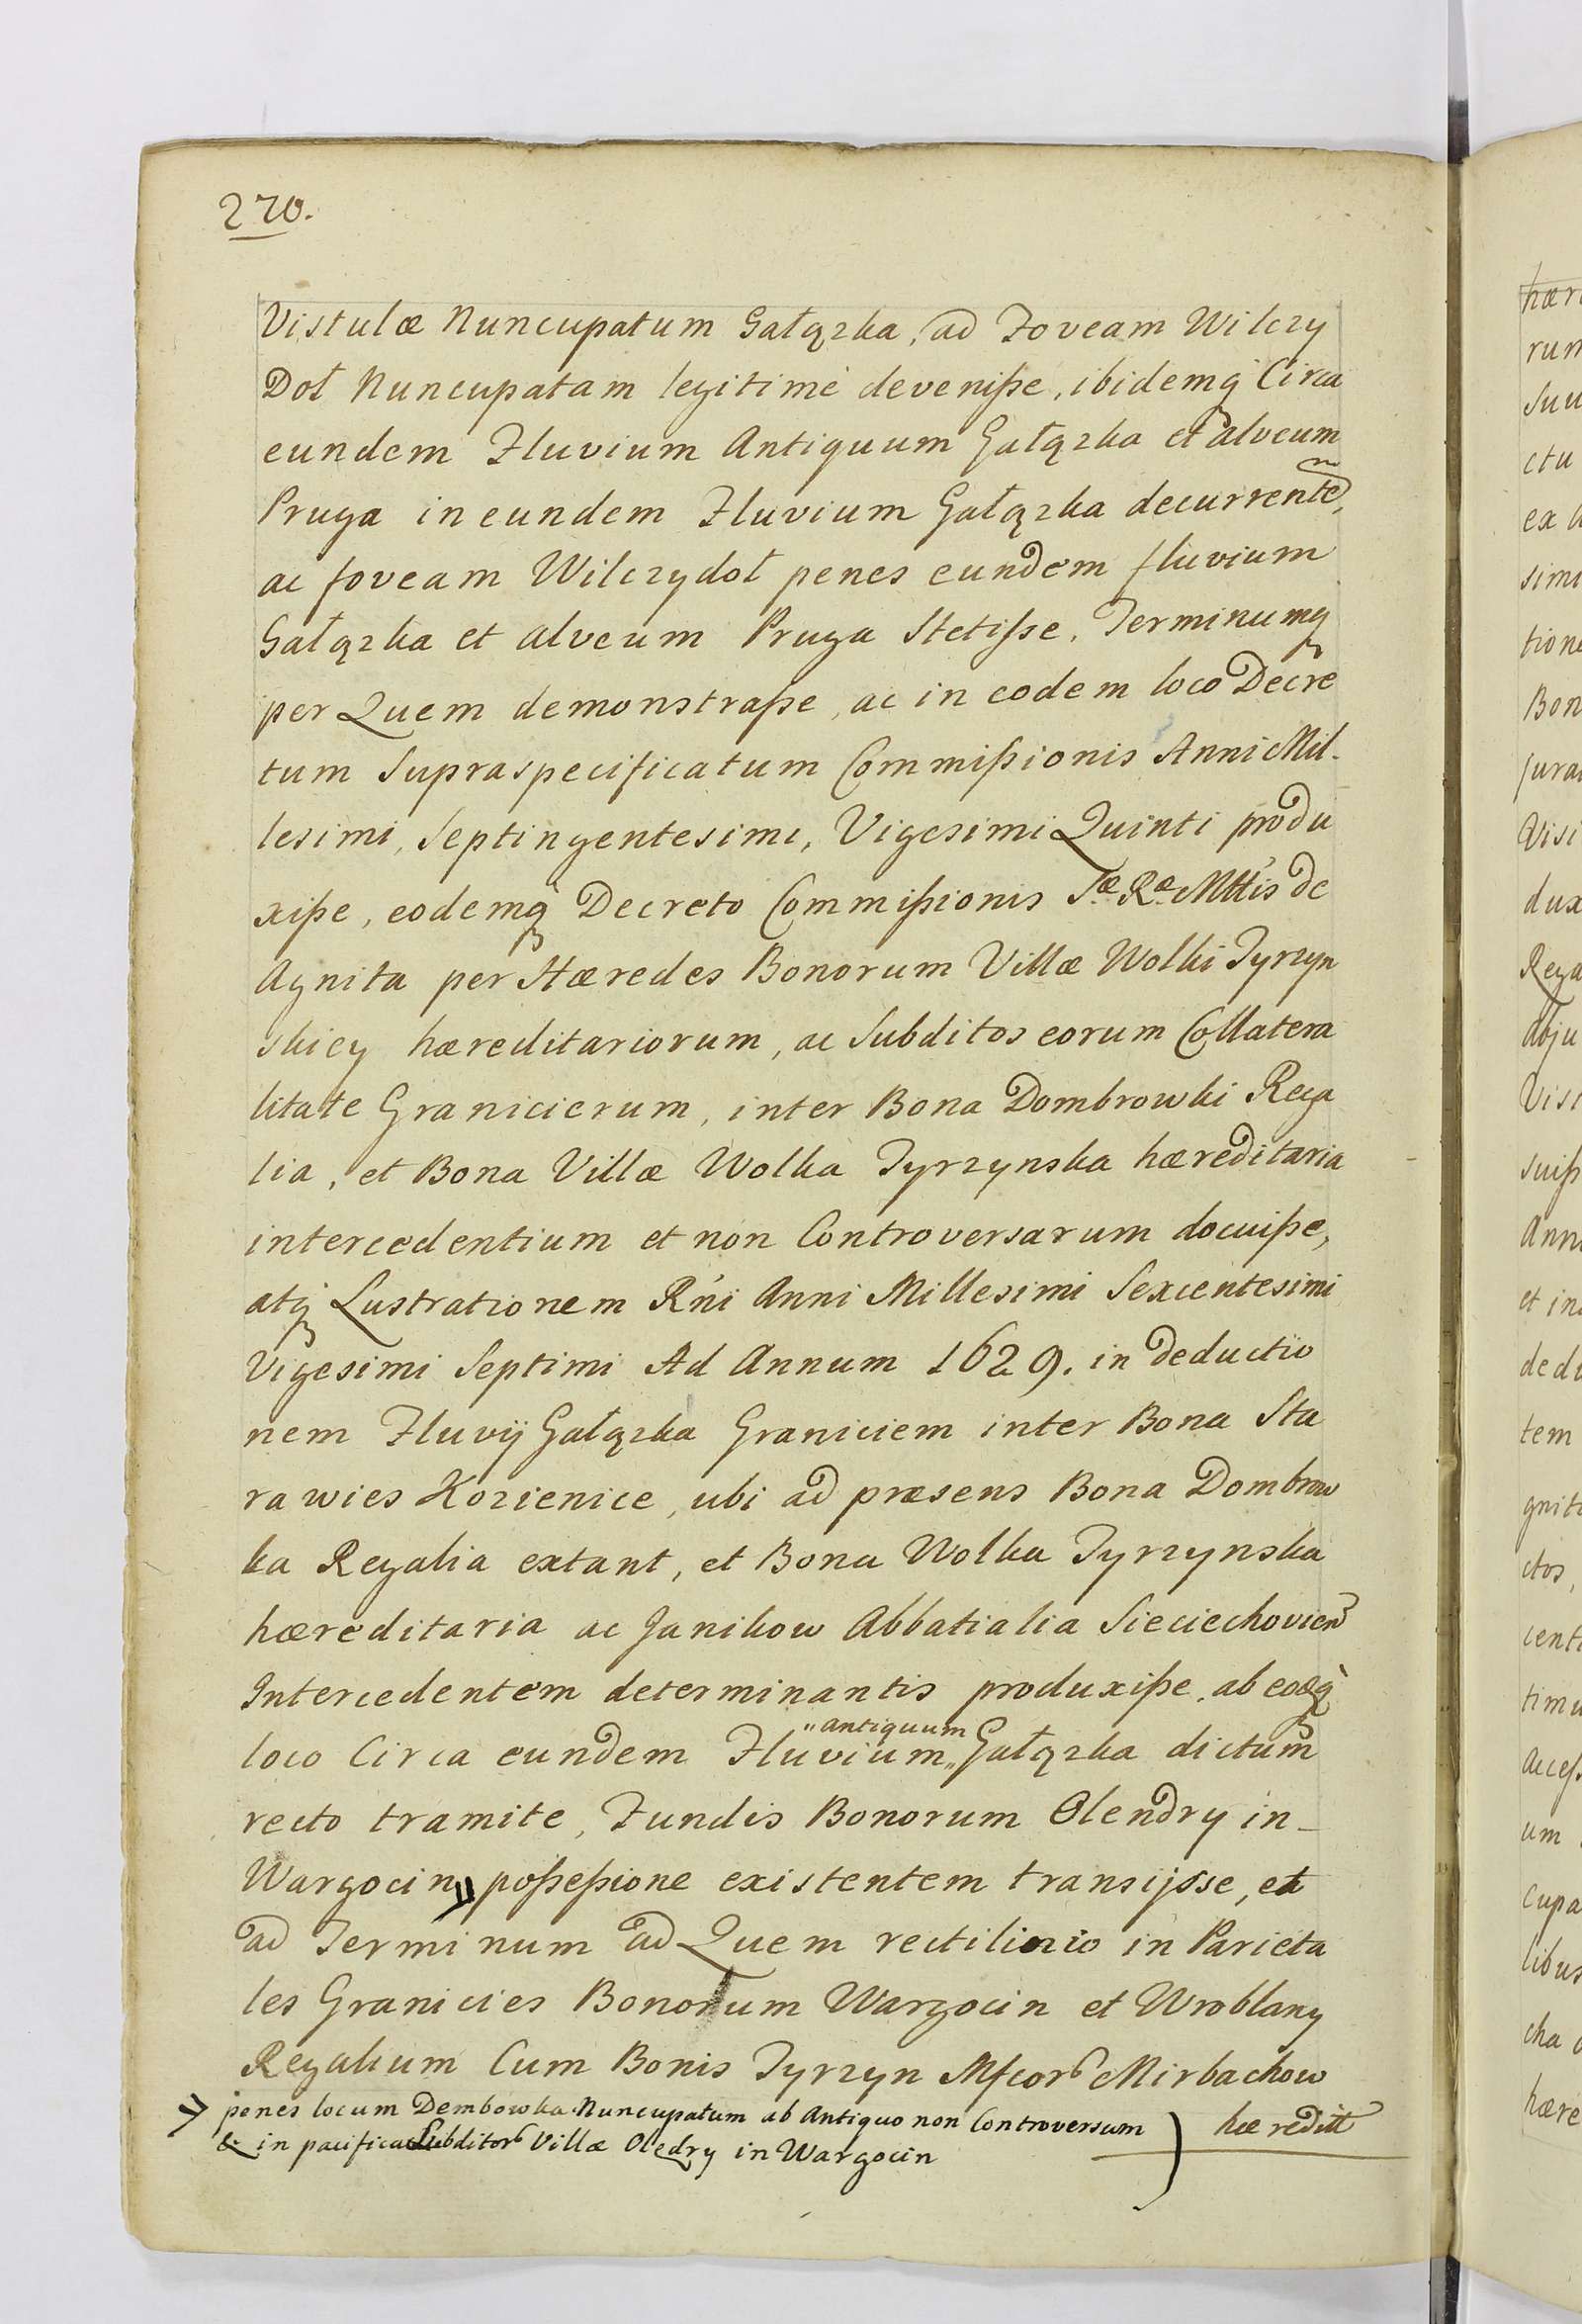 270.
Vistulæ Nuncupatum Gałązka, ad Foveam Wilczy
Doł Nuncupatam legitimè devenisse, ibidemq̀ Circa
eundem Fluvium Antiquum Gałązka et alveum
Pruga in eundem Fluvium Gałązka decurrentẽ,
ac foveam Wilczydoł penes eundem fluvium
Gałązka et alveum Pruga Stetisse, Terminumq
per Quem demonstrasse, ac in eodem loco Decre
tum Supraspecificatum Commissionis Anni Mil-
lesimi, Septingentesimi, Vigesimi Quinti produ
xisse, eodemq̀ Decreto Commissionis S.æ R.æ Mttis de
Agnita per Hæredes Bonorum Villæ Wolki Tyrzyn
skiey hæreditariorum, ac Subditos eorum Collatera
litate Granicierum, inter Bona Dombrowki Rega
lia, et Bona Villæ Wolka Tyrzynska hæreditaria
intercedentium et non Controversarum docuisse,
atq̀ Lustrationem Rńi Anni Millesimi Sexcentesimi
Vigesimi Septimi Ad Annum 1629. in deductio
nem Fluvij Gałązka Graniciem inter Bona Sta
ra wies Kozienice, ubi ad præsens Bona Dombrow
ka Regalia extant, et Bona Wolka Tyrzynska
hæreditaria ac Janikow Abbatialia Sieciechovien
Intercedentem determinantis produxisse, ab eoq̀
loco Circa eundem Fluvium „ antiquum „ Gałązka dictum
recto tramite, Fundis Bonorum Olendry in-
Wargocin 〃 possessione existentem transijsse, et
ad Terminum ad Quem rectilinio in Parieta
les Granicies Bonorum Wargocin et Wroblany
Regalium Cum Bonis Tyrzyn Mfcor Mirbachow
〃 penes locum Dembowka Nuncupatum ab Antiquo non Controversum
& in pacifica Subditor Villæ Oledry in Wargocin
hæreditt